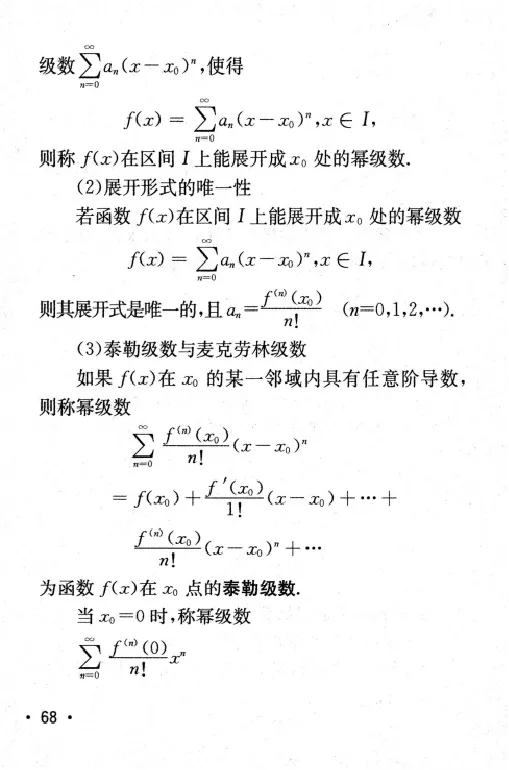 级数∑_{n=0}^{∞}a_n(x－x_0)^n,使得
f(x) = ∑_{n=0}^{∞}a_n(x－x_0)^n,x∈I,
则称 f(x)在区间 I 上能展开成 x_0 处的幂级数.
(2)展开形式的唯一性
若函数 f(x)在区间 I 上能展开成 x_0 处的幂级数
f(x) = ∑_{n=0}^{∞}a_n(x－x_0)^n,x∈I,
则其展开式是唯一的,且 a_n=\frac{f^{(n)}(x_0)}{n!} (n=0,1,2,⋯).
(3)泰勒级数与麦克劳林级数
如果 f(x)在 x_0 的某一邻域内具有任意阶导数,
则称幂级数
∑_{n=0}^{∞}\frac{f^{(n)}(x_0)}{n!}(x－x_0)^n
= f(x_0)+\frac{f'(x_0)}{1!}(x－x_0)+⋯+
\frac{f^{(n)}(x_0)}{n!}(x－x_0)^n+⋯
为函数 f(x)在 x_0 点的泰勒级数.
当 x_0=0 时,称幂级数
∑_{n=0}^{∞}\frac{f^{(n)}(0)}{n!}x^n
· 68 ·